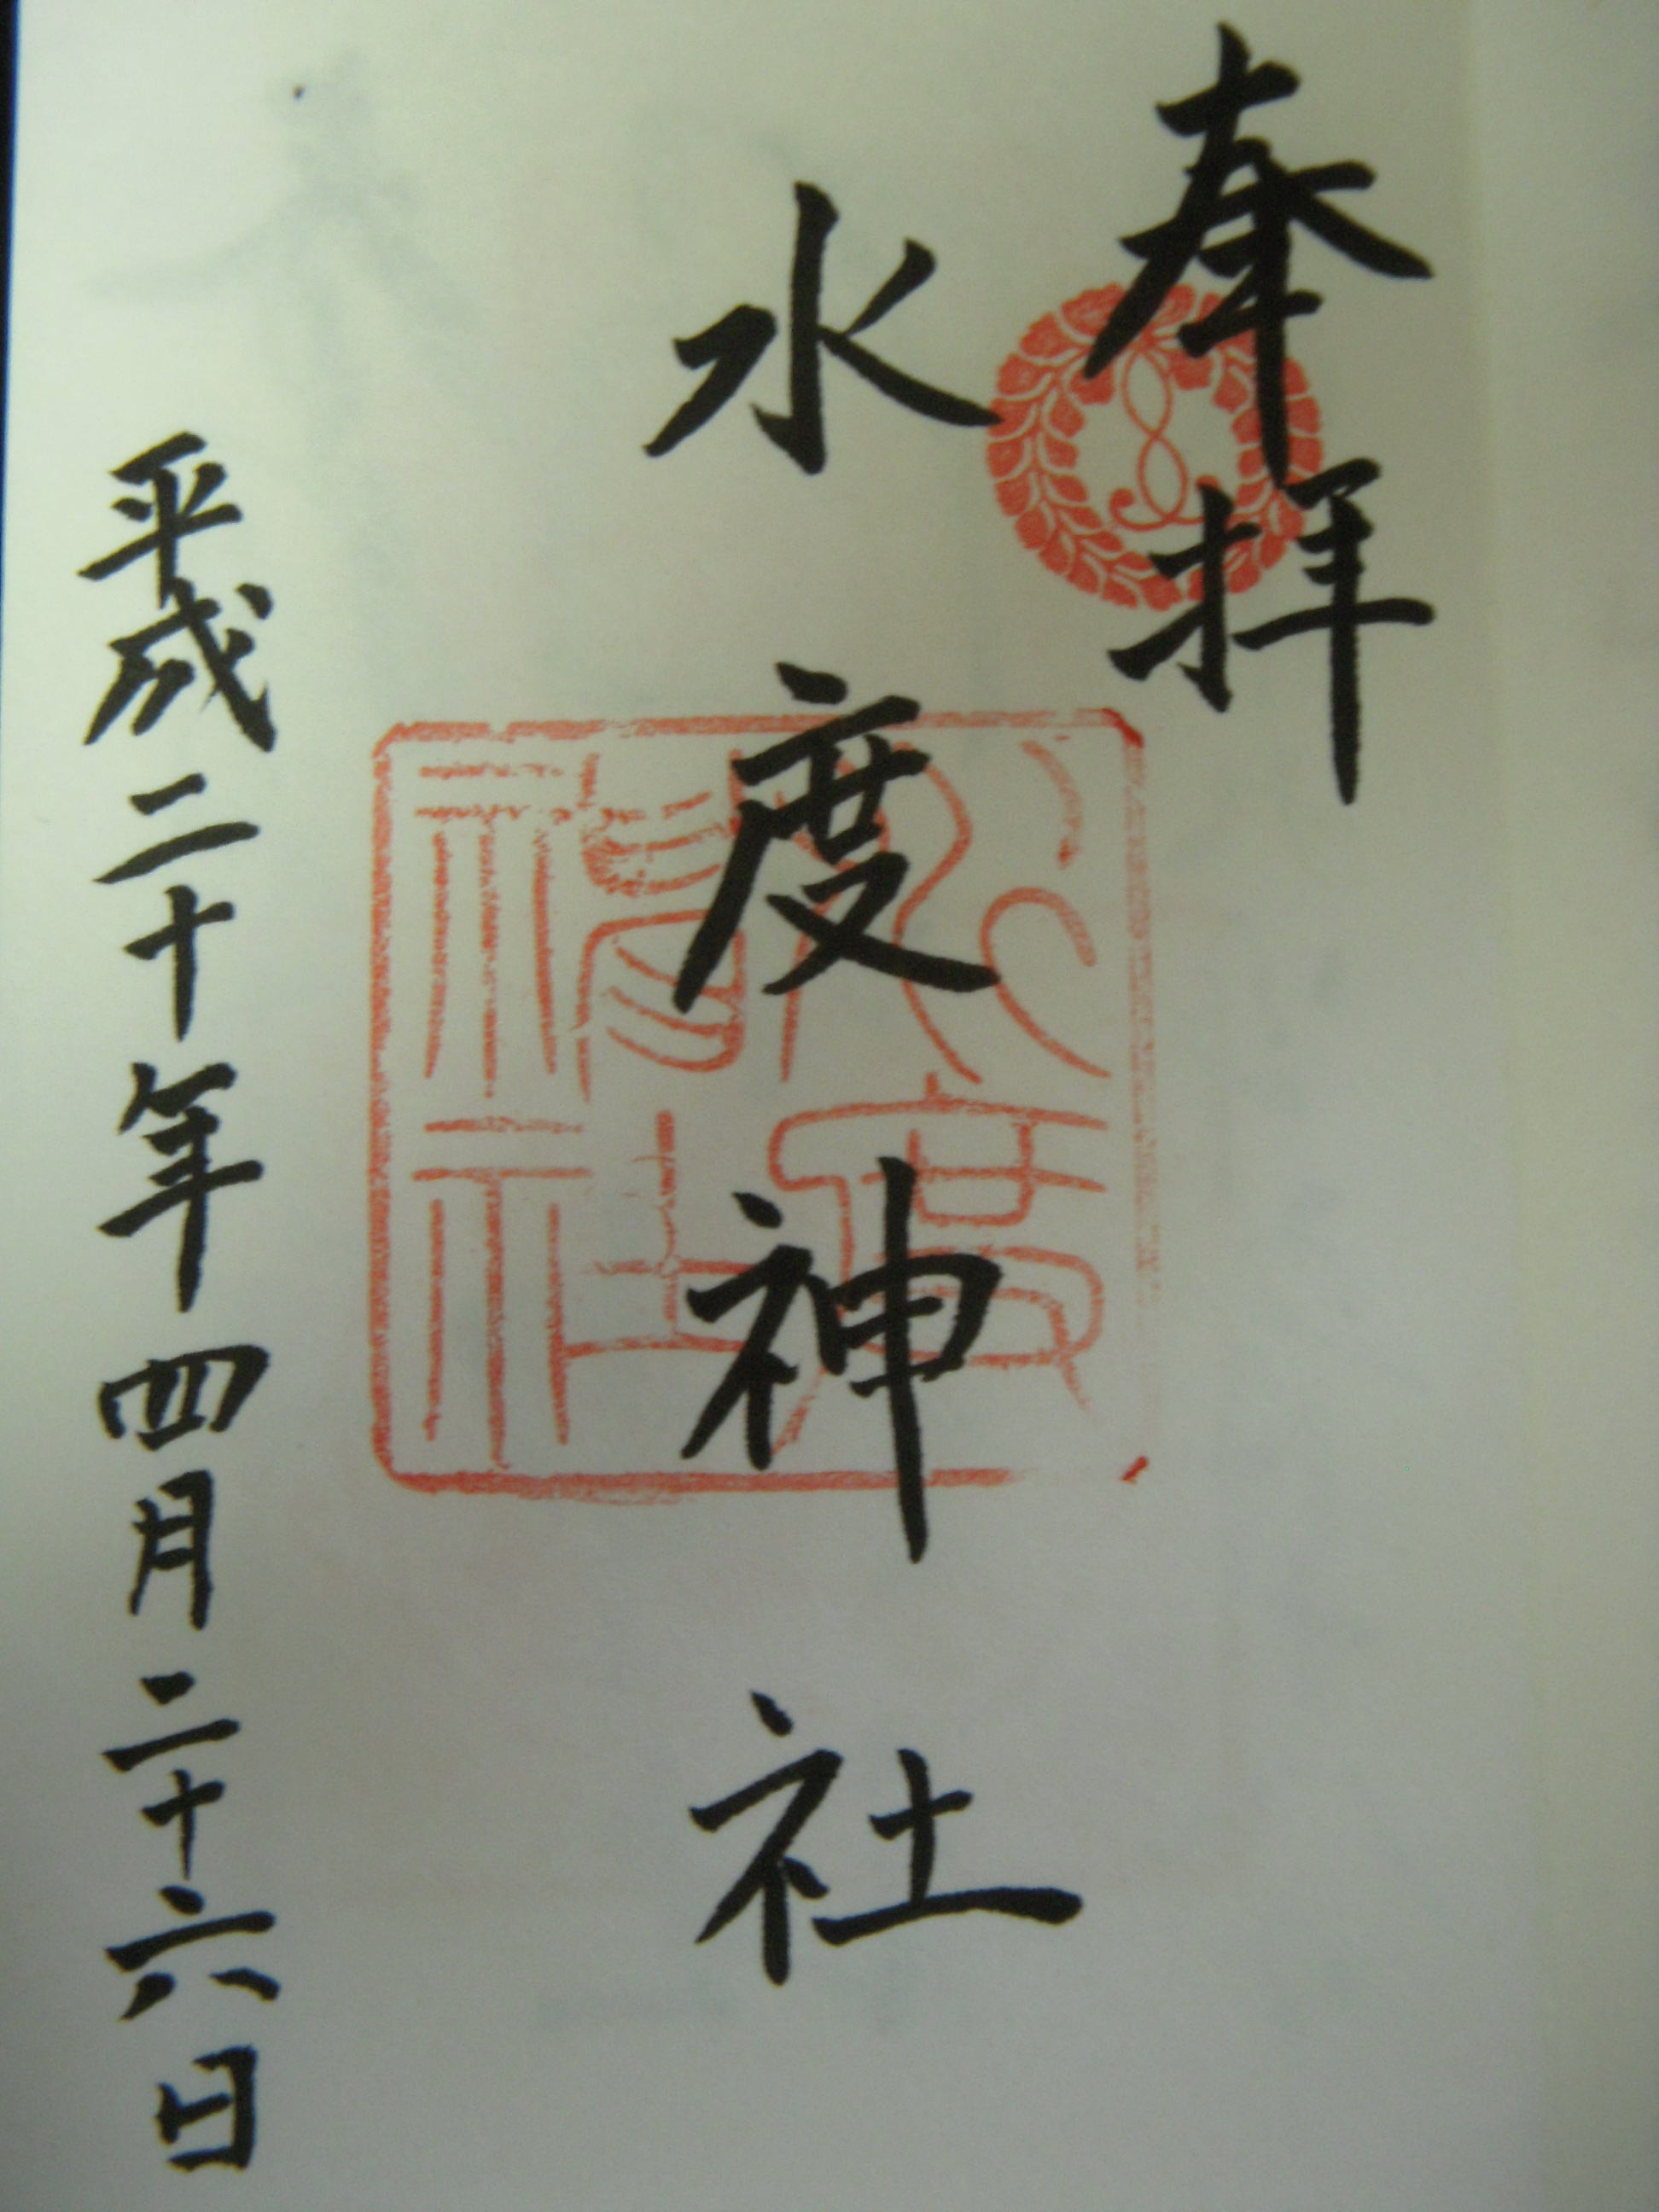 奉拝
水度神社
平成二十年四月二十六日
水度神社